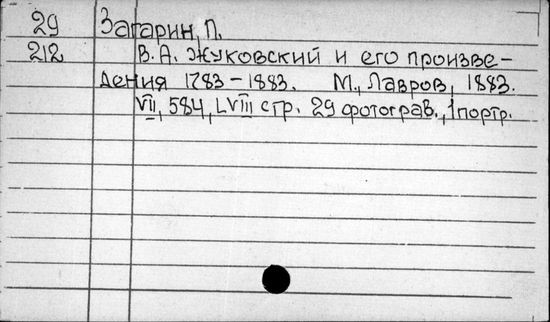 29 Загарин, П.
212 В. А. Жуковский и его произве-
дения 1783 – 1883. М., Лавров, 1883.
VII, 584, LVIII стр. 29 фотограв., 1 портр.